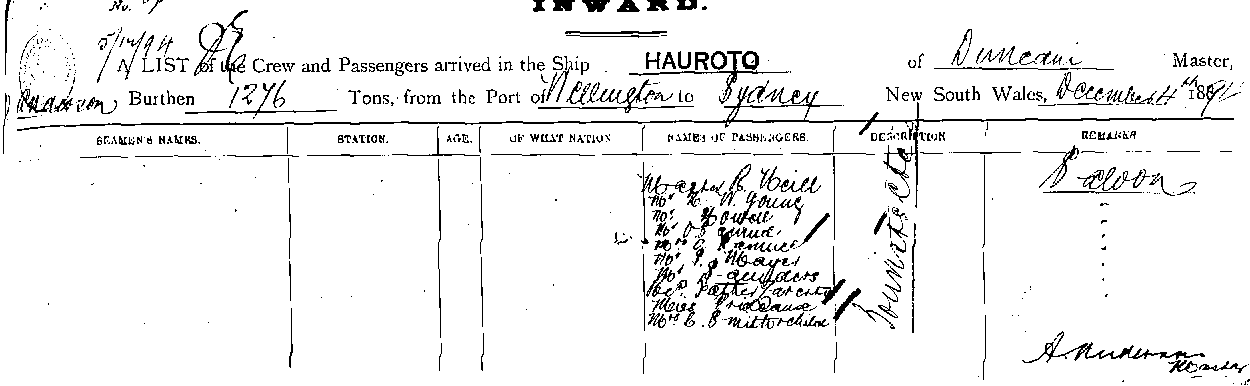 No.
INWARD.
5/12/94
A LIST of the Crew and Passengers arrived in the Ship HAUROTO of Dunedin Master,
Anderson Burthen 1276 Tons, from the Port of Wellington to Sydney New South Wales, December 4th 189
SEAMEN'S NAMES. STATION. AGE. OF WHAT NATION NAMES OF PASSENGERS. DESCRIPTION REMARKS
Master C. Neill Saloon
Mr H. W. Young
Mr Howell
Mr O S
Mrs O
Mr P. J Hayes
Mr Saunders
Revd Father
Miss Prideaux
Mrs C. Smith & child
Tourists &c
A. Anderson
Master